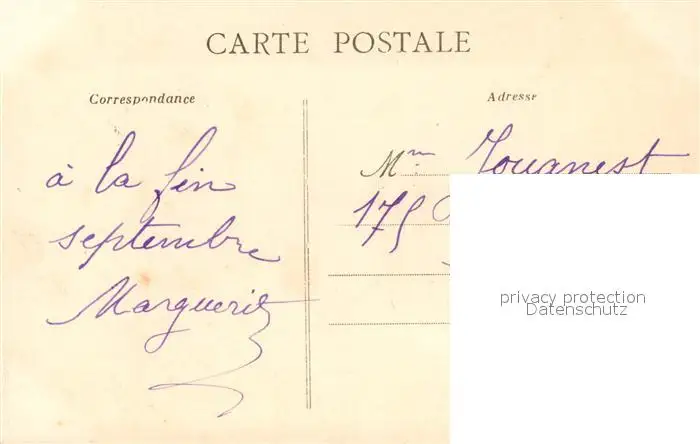 CARTE POSTALE
Correspondance
Adresse
à la fin
septembre
Marguerite
Mme Jouanest
175
privacy protection
Datenschutz